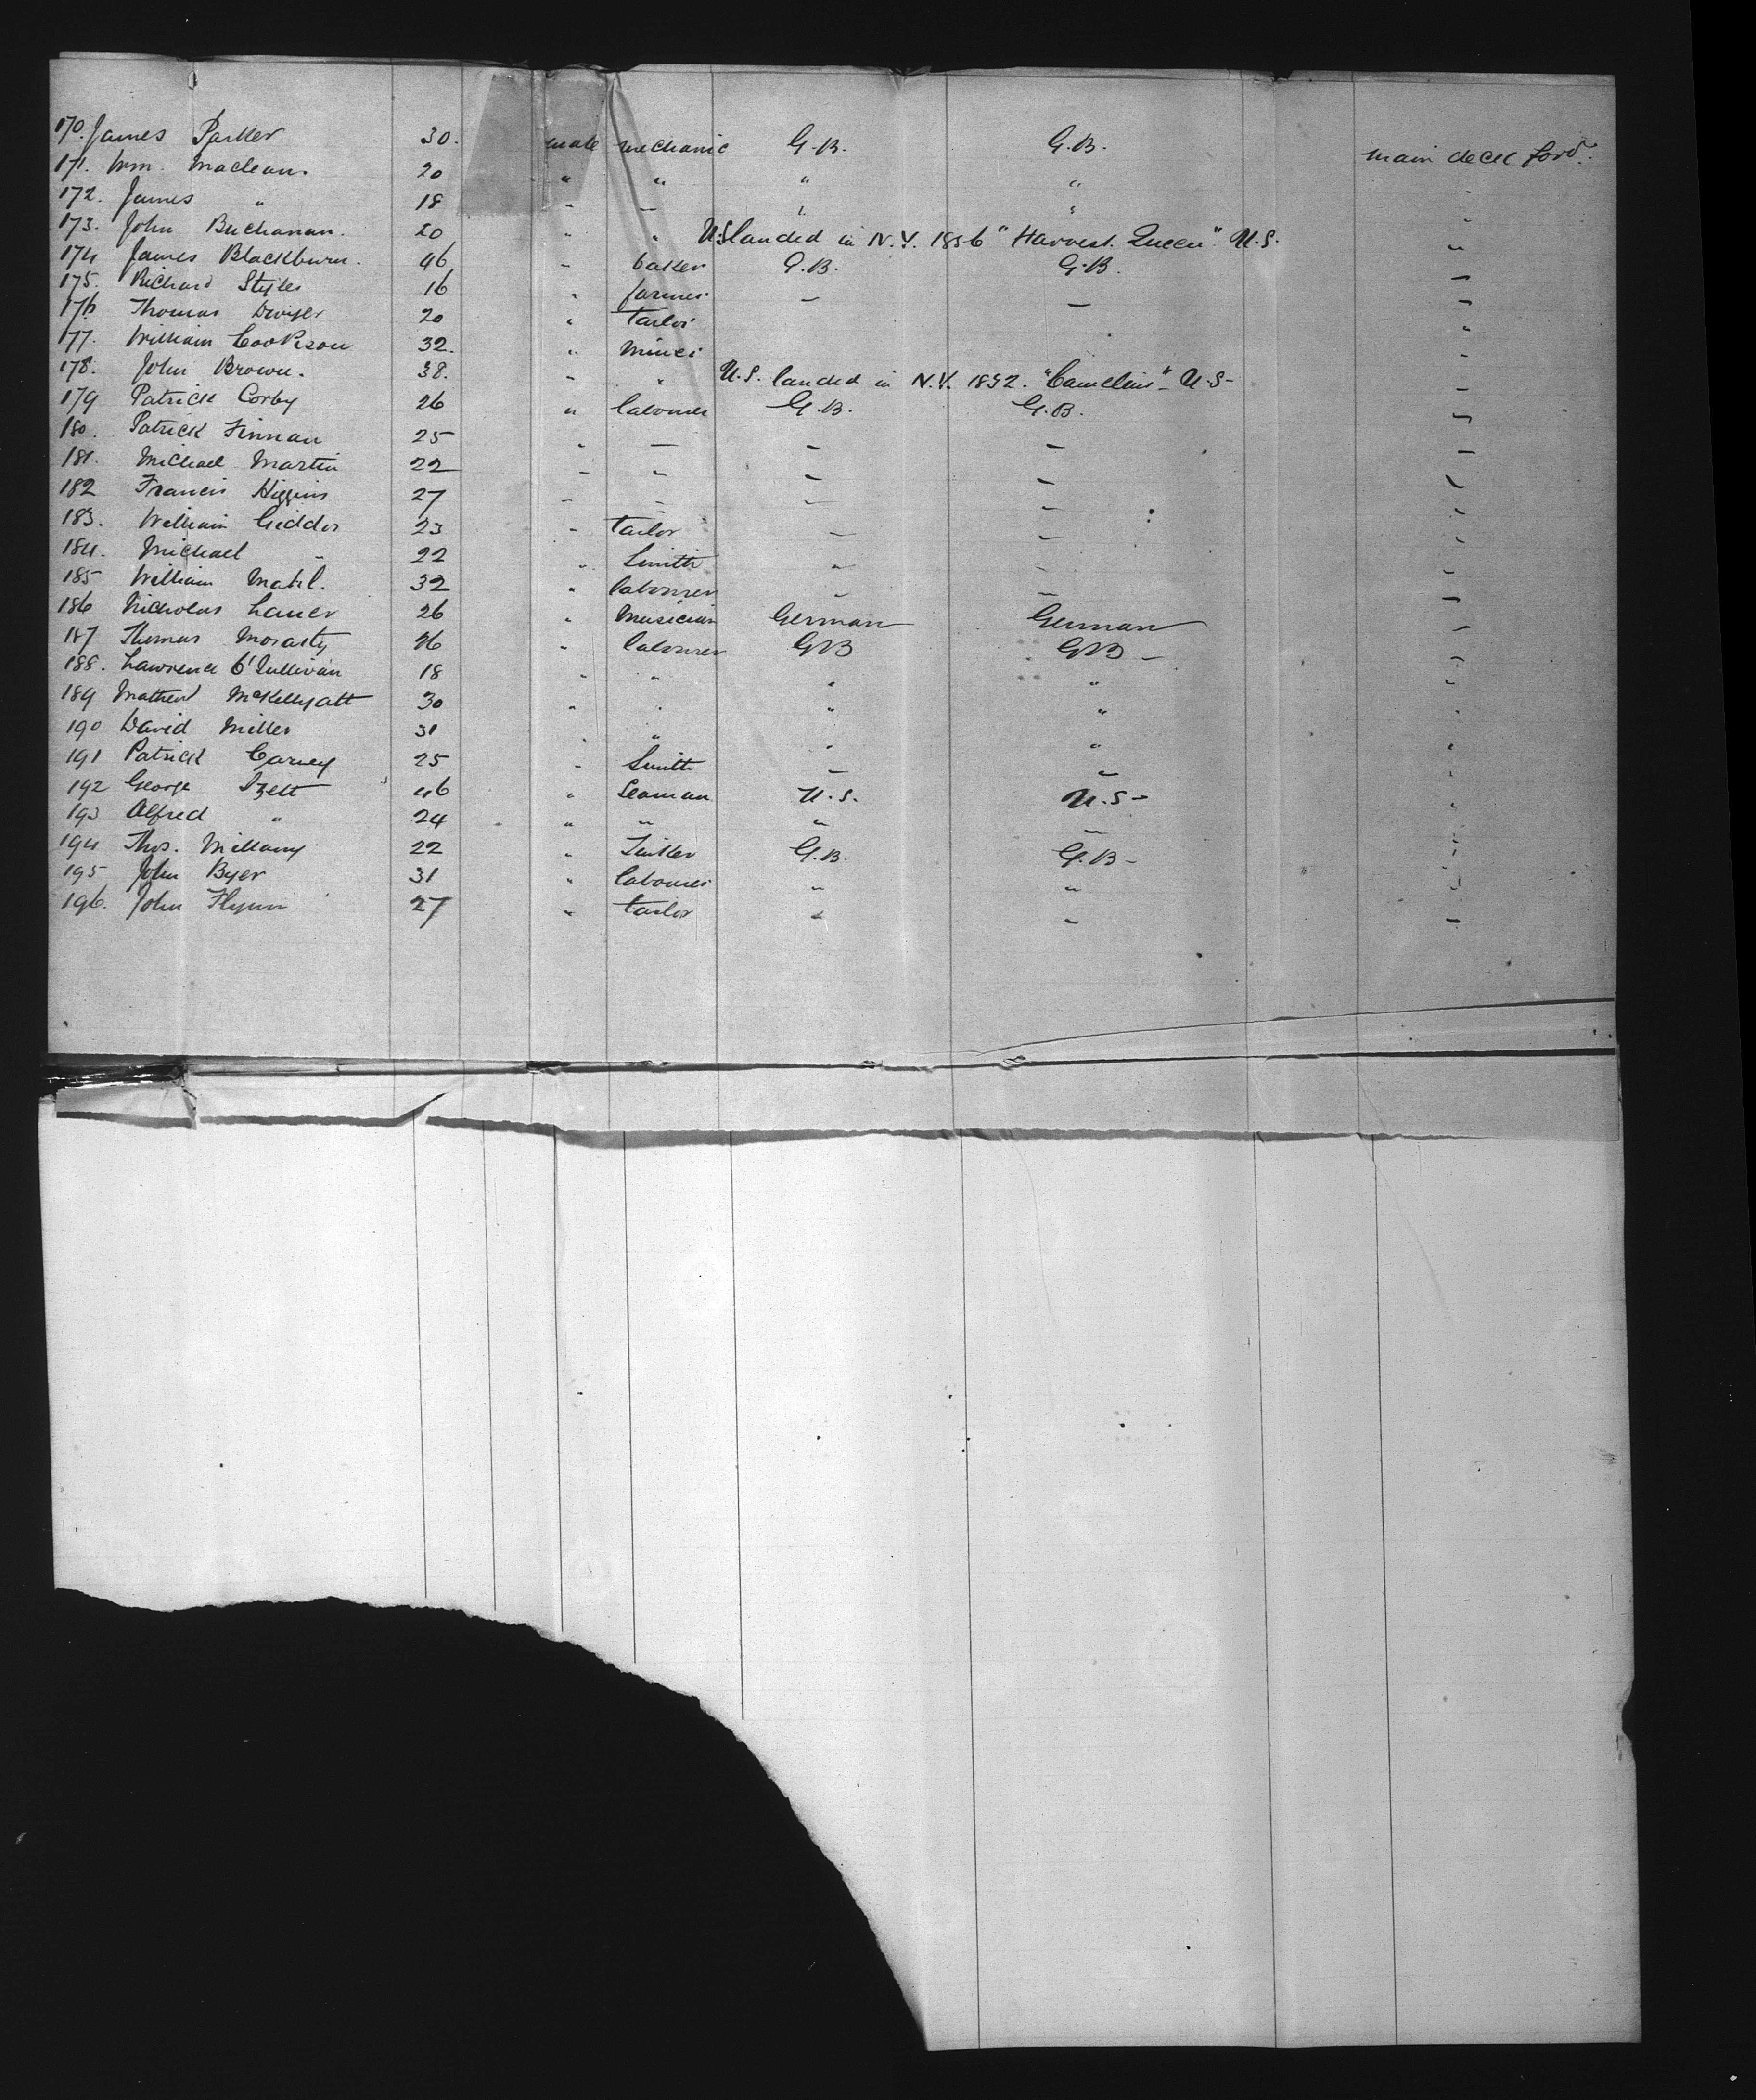 170. James Parker 30. male mechanic G.B. G.B. main deck ford.
171. Wm. Maclean. 20 " " " "
172. James " 18 " — " " "
173. John Buchanan. 20 " " U.S. landed in N.Y. 1856 "Harvest Queen" U.S. "
174 James Blackburn. 46 " baker G.B. G.B. —
175. Richard Styles 16 " farmer — — —
176 Thomas Dwyer 20 " tailor "
177. William Cookson 32. " miner -
178. John Brown. 38. " " U.S. landed in N.Y. 1852. U.S- —
179 Patrick Corby 26 " labourer G.B. G.B. "
180. Patrick Finnan 25 " — — — —
181. Michael Martin 22 " " — — "
182 Francis Higgins 27 — — — — "
183. William 23 " tailor — — "
184. Michael " 22 " Smith " - "
185 William 32 " labourer — — —
186 Nicholas Lauer 26 " musician German German —
187 Thomas Morarty 26 " labourer GB GB — "
188. Lawrence O'Sullivan 18 " " " " "
189 Mathew 30 " " " " "
190 David Miller 31 " " " " "
191 Patrick Carney 25 " Smith — — "
192 George 46 " Seaman U.S. U.S - "
193 Alfred " 24 " " " — "
194 Thos. 22 " G.B. G.B - "
195 John Byer 31 " labourer " " "
196. John Flynn 27 " tailor " " —